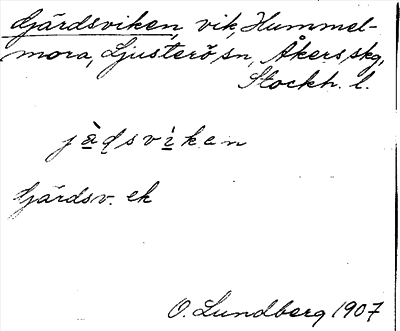 Gjärdsviken, vik, Hummel-
mora, Ljusterö sn, Åkers skg,
Stockh. l.
jädsviken
Gjärdsv. ek
O. Lundberg 1907